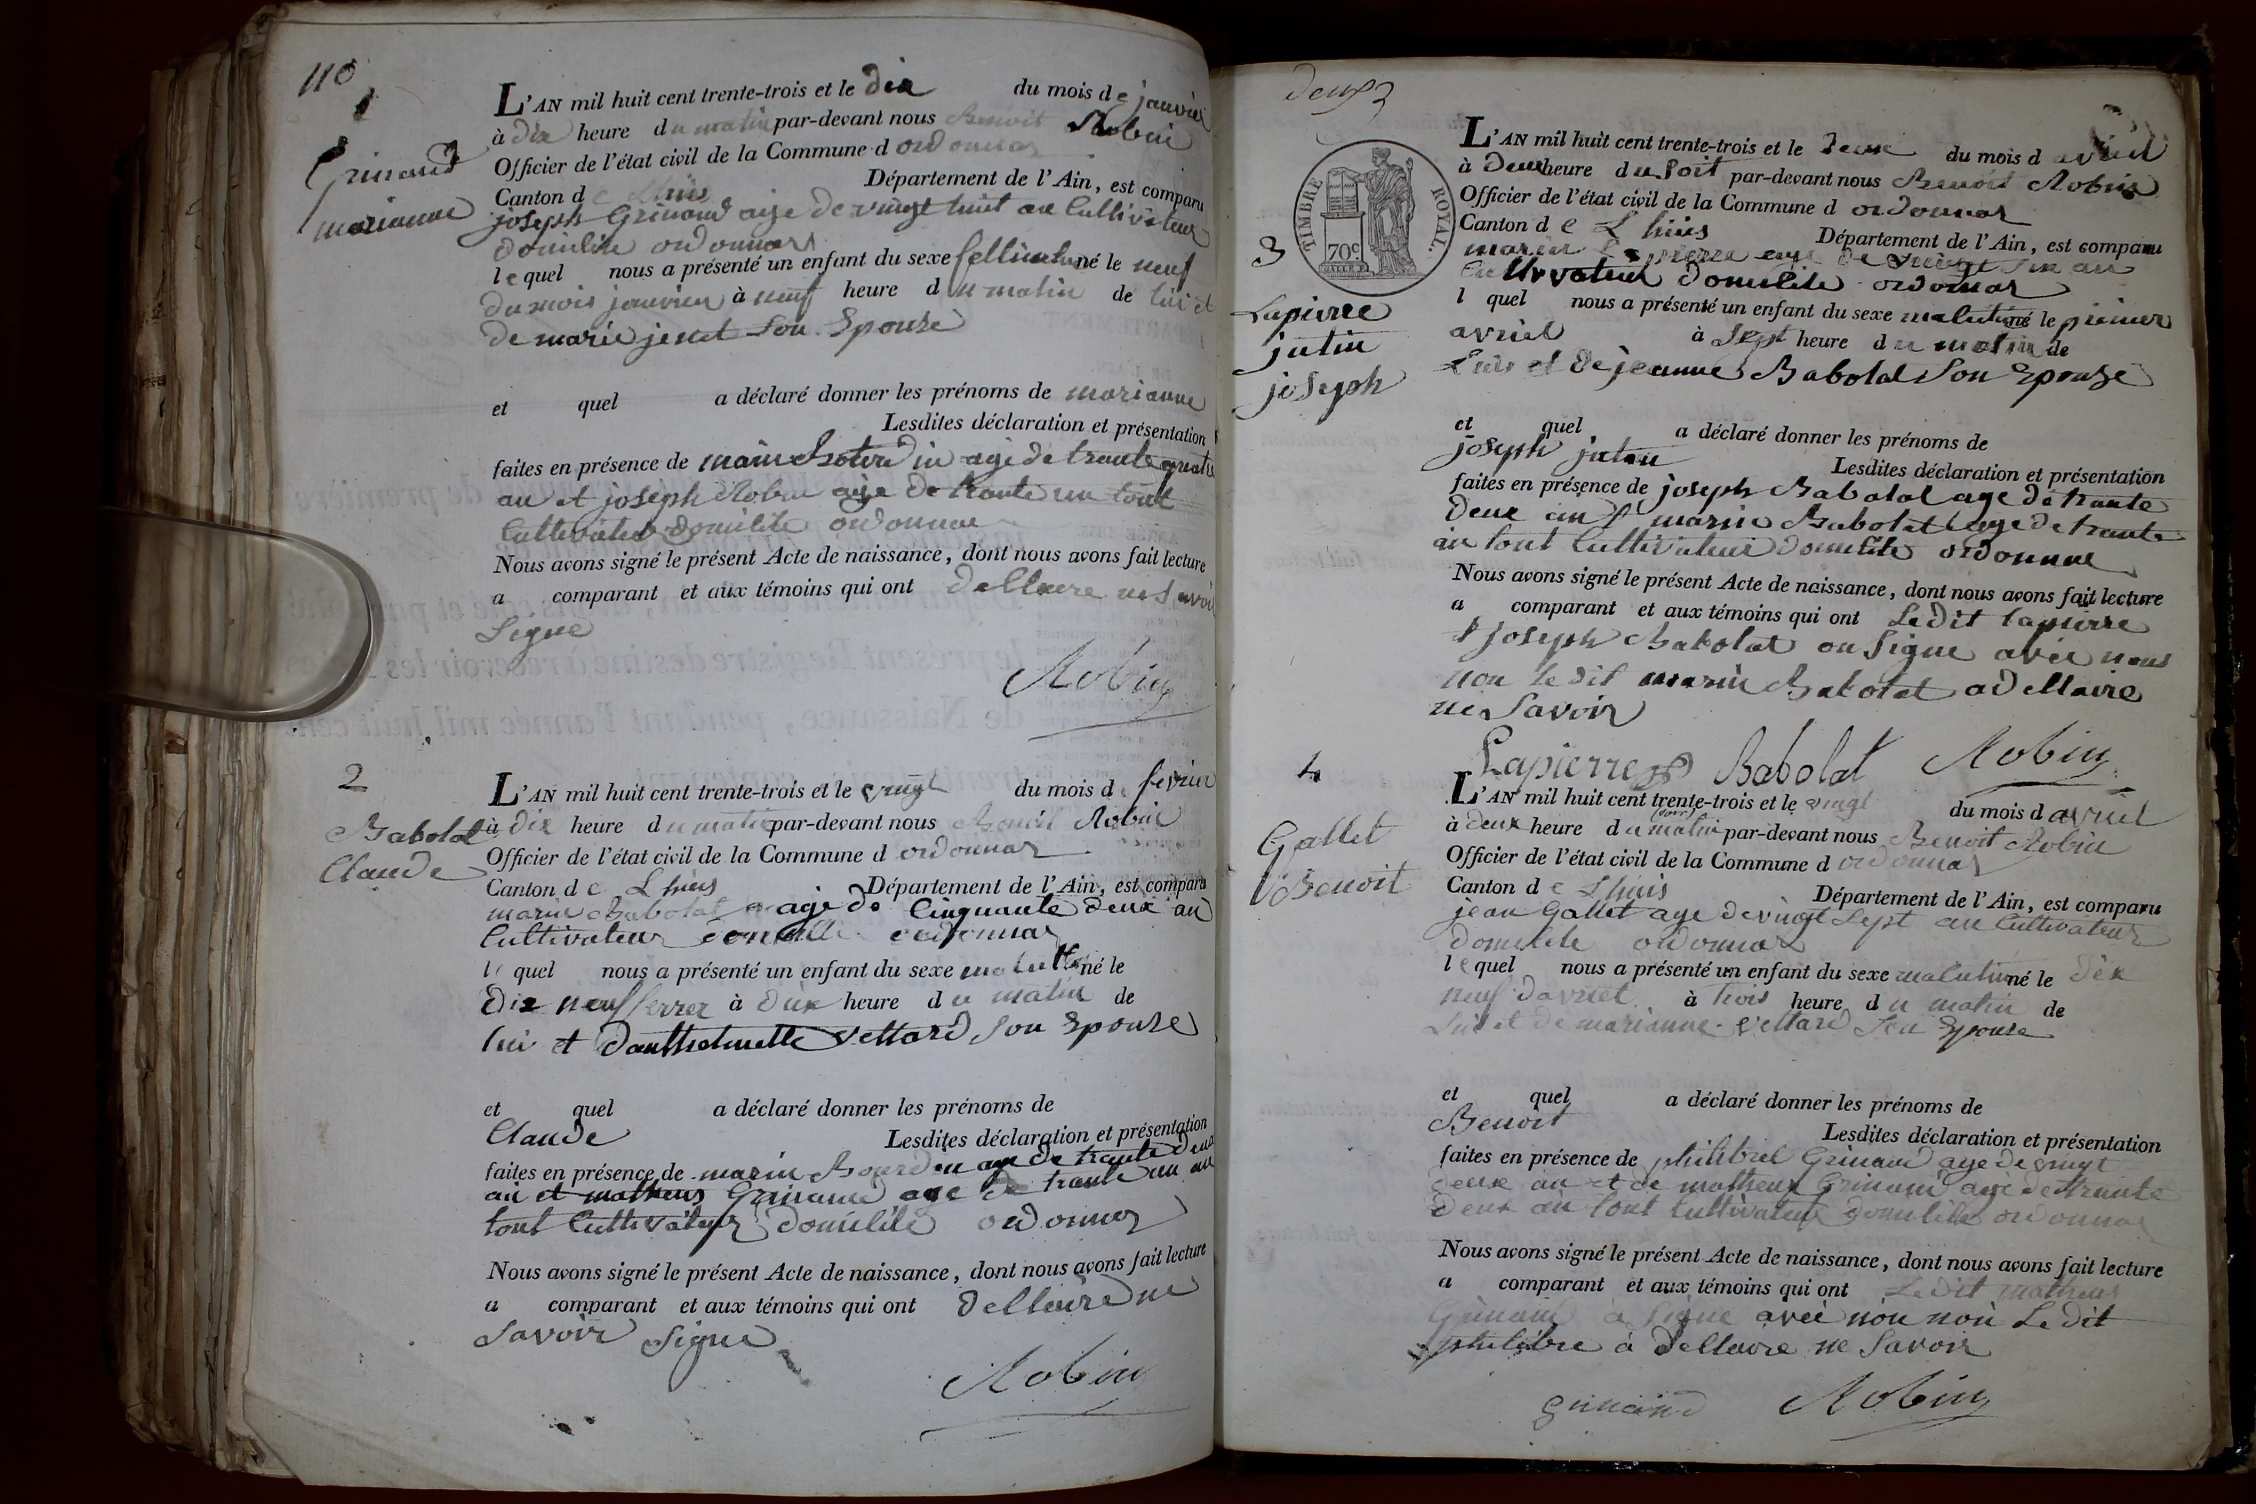 110
1
Grinand
marianne
L'AN mil huit cent trente-trois et le dix du mois de janvier
à dix heure du matin par-devant nous Benoit Robin
Officier de l'état civil de la Commune d ordonnas
Canton de Lhuis Département de l'Ain, est comparu
joseph Grinand age de vingt huit an Cultivateur
domicilie ordonnas
lequel nous a présenté un enfant du sexe né le neuf
du mois janvier à neuf heure du matin de lui et
de marie jenet Son Epouse
et quel a déclaré donner les prénoms de marianne
Lesdites déclaration et présentation
faites en présence de age de trante quatre
an et joseph Robin age de trante un tout
Cultivateur domicilie ordonnas
Nous avons signé le présent Acte de naissance, dont nous avons fait lecture
a comparant et aux témoins qui ont dellaire ne Savoir
Signe
Robin
2
Babolat
Claude
L'AN mil huit cent trente-trois et le vingt du mois de fevrier
à dix heure du matin par-devant nous Benoit Robin
Officier de l'état civil de la Commune d ordonnas
Canton de Lhuis Département de l'Ain, est comparu
marin Babolat age de Cinquante deux an
Cultivateur ordonnas
le quel nous a présenté un enfant du sexe né le
Dix neuf à dix heure du matin de
lui et Vettard Son Epouse
et quel a déclaré donner les prénoms de
Claude
Lesdites déclaration et présentation
faites en présence de marin Bourdin age de trante deux
an et matheus Grinand age de trante un an
tout Cultivateur domicilie ordonnas
Nous avons signé le présent Acte de naissance, dont nous avons fait lecture
a comparant et aux témoins qui ont dellaire ne
Savoir Signe
Robin
deux
TIMBRE ROYAL.
70c
3
Lapierre
jutin
joseph
L'AN mil huit cent trente-trois et le deux du mois d avriel
à deux heure du Soit par-devant nous Benoit Robin
Officier de l'état civil de la Commune d ordonnas
Canton de Lhuis Département de l'Ain, est comparu
marin Lapierre age de vingt Six an
Cultivateur domicilie ordonnas
l quel nous a présenté un enfant du sexe né le pimier
avriel à Sept heure du matin de
Lui et de jeanne Babolat Son Epouse
et quel a déclaré donner les prénoms de
joseph jutin
Lesdites déclaration et présentation
faites en présence de joseph Babolat age de trante
deux an marin Babolat age de trante
an tout Cultivateur domicilie ordonnas
Nous avons signé le présent Acte de naissance, dont nous avons fait lecture
a comparant et aux témoins qui ont Le dit lapierre
joseph Babolat on Signe avec nous
non le dit marin Babolat a dellaire
ne Savoir
Lapierre Babolat Robin
4
Gallet
Benoit
L'AN mil huit cent trente-trois et le vingt du mois d avriel
à deux heure du matin (soir) par-devant nous Benoit Robin
Officier de l'état civil de la Commune d ordonnas
Canton de Lhuis Département de l'Ain, est comparu
jean Gallet age de vingt Sept an Cultivateur
domicilie ordonnas
lequel nous a présenté un enfant du sexe né le dix
neuf davriel à trois heure du matin de
Lui et de marianne Vettard Son Epouse
et quel a déclaré donner les prénoms de
Benoit
Lesdites déclaration et présentation
faites en présence de philibrel Grinand age de vingt
deux an et de matheus Grinand age de trante
deux an tout Cultivateur domicilie ordonnas
Nous avons signé le présent Acte de naissance, dont nous avons fait lecture
a comparant et aux témoins qui ont Le dit matheus
Grinand a Signe avec nou non Le dit
philibre a dellaire ne Savoir
Grinand Robin